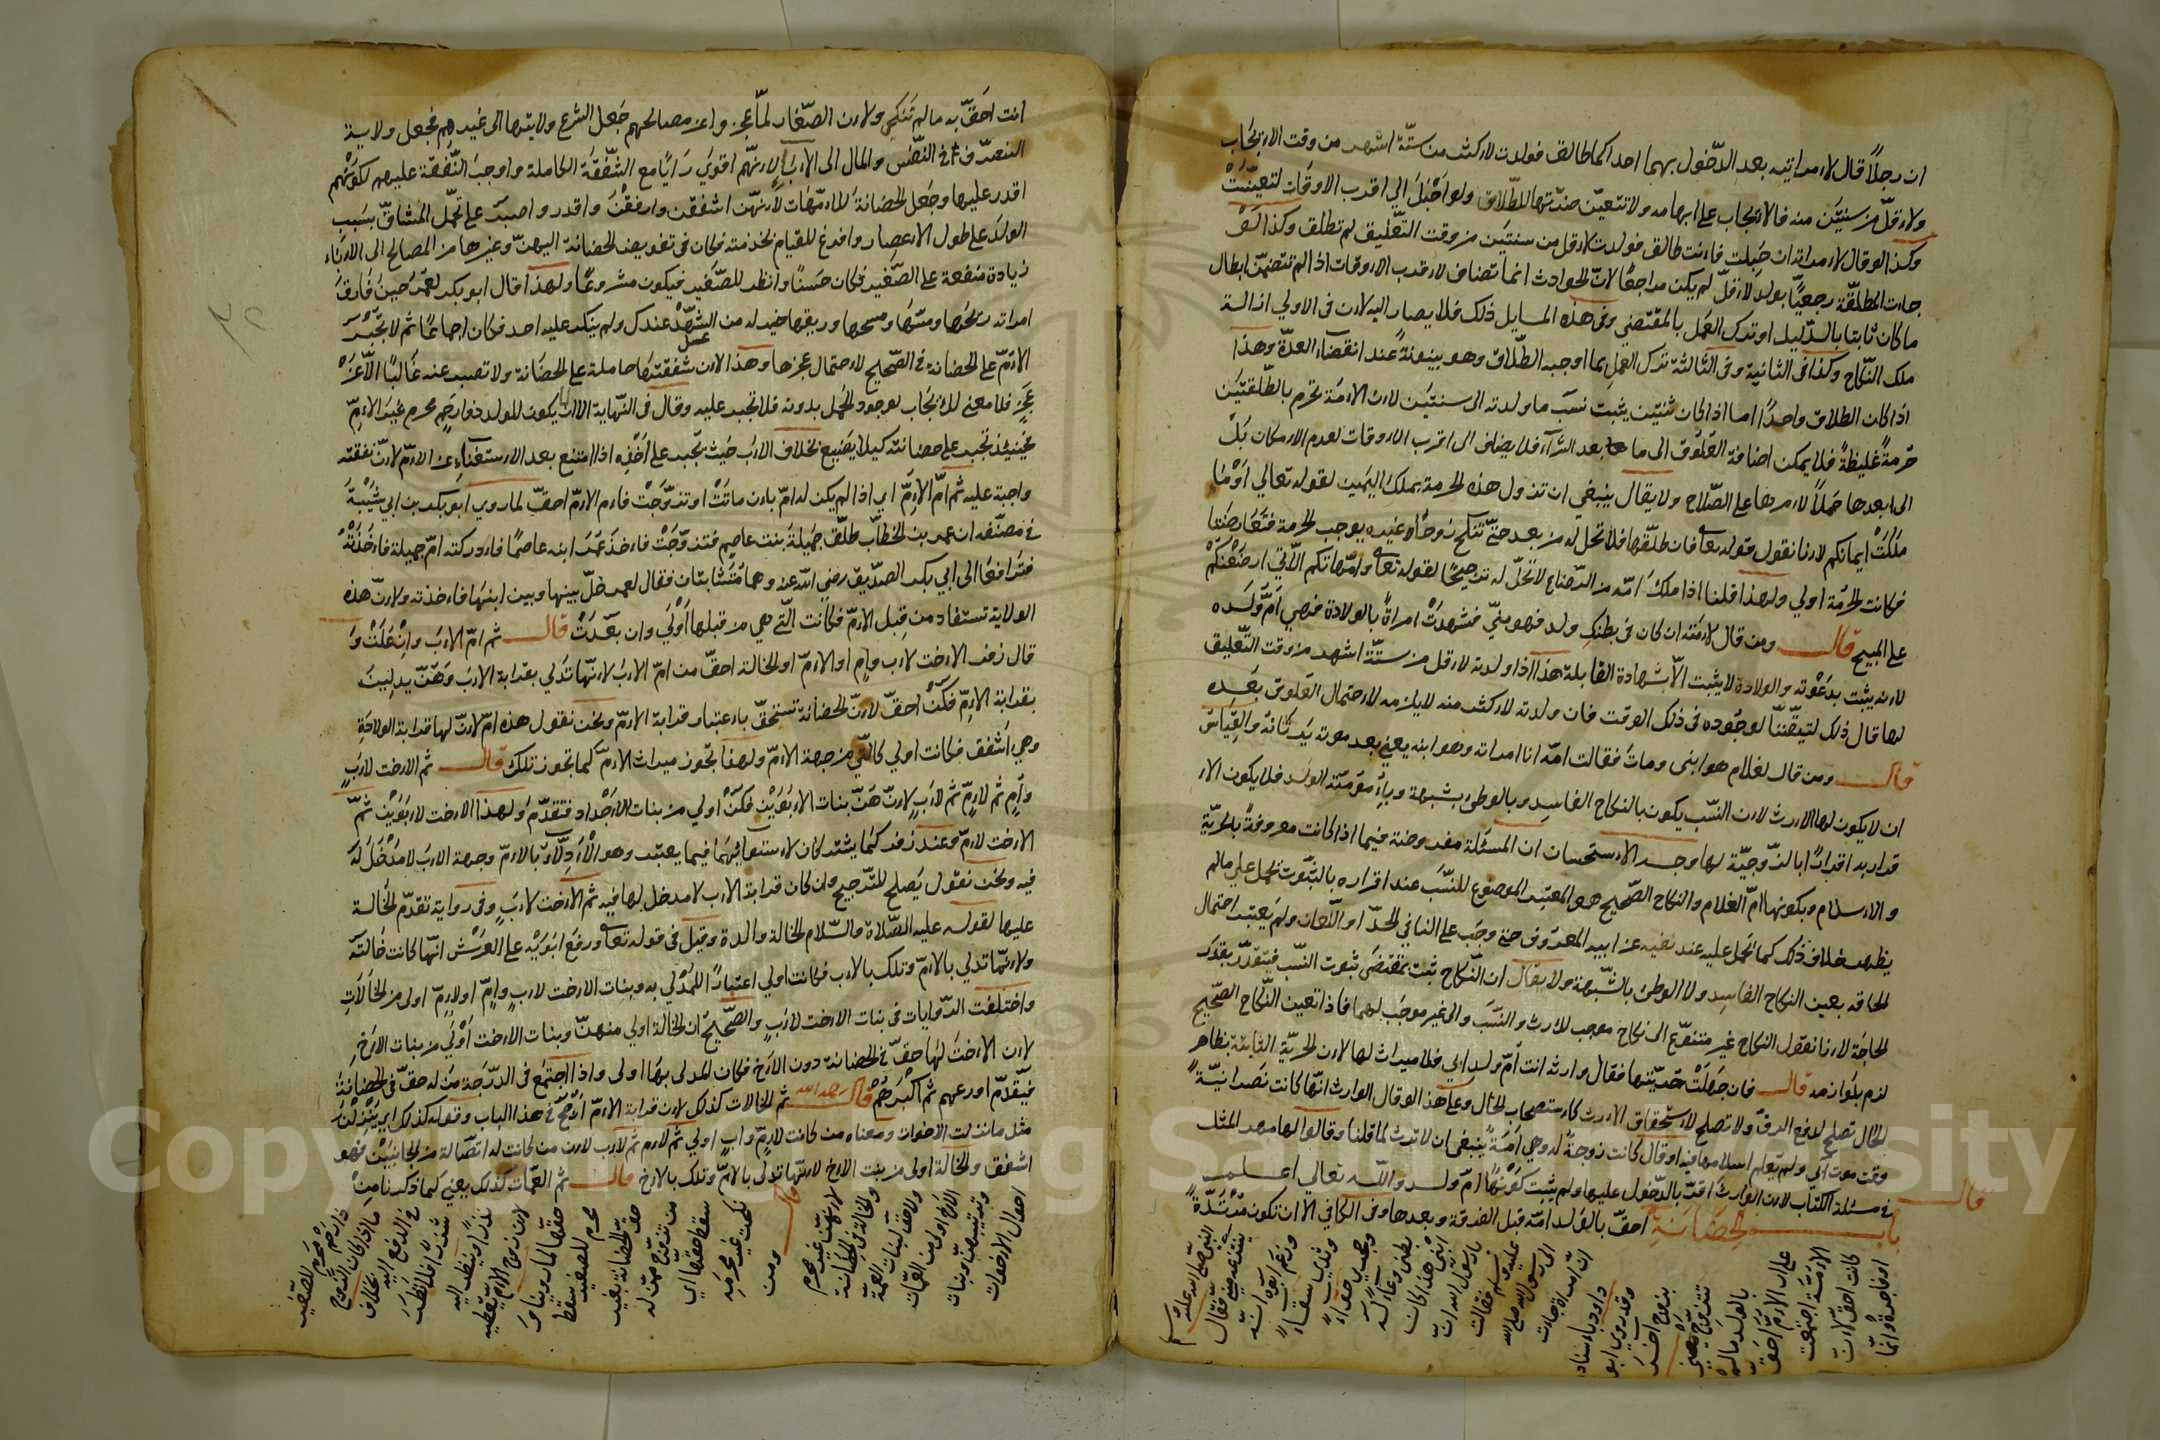 ان رجلاً قال لامراتيه بعد الدخول بهما احداكما طالق فولدت لاكثر من ستّة اشهر من وقت الايجاب
ولاقلّ من سنتين منه فالايجاب على ابهامه ولا تتعيّن ضرّتها للطّلاق ولو احبل الي اقرب الاوقات لتعيّنت
وكذا لو قال لامراته ان حبلت فانت طالق فولدت لاقل من سنتين من وقت التّعليق لم تطلق وكذا لو
جاءت المطلّقة رجعيّا بولد لاقلّ لم يكن مراجعًا لانّ الحوادث انما تضاف لاقرب الاوقات اذا لم تتضمّن ابطال
ما كان ثابتا بالدّليل او ترك العمل بالمقتضي وفي هذه المسايل ذلك فلا يصار اليه لان في الاولي ازالة
ملك النّكاح وكذا في الثانية وفي الثّالثة ترك العمل بما اوجبه الطّلاق وهو بينونةً عند انقضاء العدّة وهذا
اذا كان الطلاق واحدًا اما اذا كان ثنتين يثبت نسب ما ولدته الى سنتين لان الامة تحرم بالطّلقتين
حرمةً غليظةً فلا يمكن اضافة العلوق الى ما بعد الشرآء فلا يضاف الى اقرب الاوقات لعدم الامكان بل
الى ابعدها حملاً لامرها على الصّلاح ولا يقال ينبغي ان تزول هذه الحرمة بملك اليمين لقوله تعالي او ما
ملكت ايمانكم لانا نقول قوله تعالى فان طلقها فلا تحل له من بعد حتّى تنكح زوجًا غيره يوجب الحرمة فتعارضا
فكانت الحرمة اولي ولهذا قلنا اذا ملك امّه من الرّضاع لا تحلّ له ترجيحًا لقوله تعالى وامّهاتكم الّاتي ارضعنكم
على المبيح قال ومن قال لامته ان كان في بطنك ولد فهو منّي فشهدت امراةً بالولادة فهي امّ ولده
لانه يثبت بدعوته والولادة لا يثبت الّا بشهادة القابلة هذا اذا ولدته لاقل من ستّة اشهر من وقت التّعليق
لها قال ذلك لتيقّننا لوجوده في ذلك الوقت فان ولدته لاكثر منه لا يلزمه لاحتمال العلوق بعده
قال ومن قال لغلام هو ابني ومات فقالت امّه انا امراته وهو ابنه يعني بعد موته يرثانه والقياس
ان لا يكون لها الارث لان النسب يكون بالنكاح الفاسد وبالوطئ بشبهة وبامومة الولد فلا يكون الا
قراره اقرارًا بالزّوجيّة لها وجه الاستحسان ان المسئلة مفروضة فيما اذا كانت معروفةً بالحريّة
والاسلام وبكونها امّ الغلام والنكاح الصّحيح هو المعتبر الموضوع للنسب عند اقراره بالبنوّت يحمل علي ما لم
يظهر خلاف ذلك كما يحمل عليه عند نفيه عن ابيه المعروف حتى وجب على النافي الحدّ او اللّعان ولم يعتبر احتمال
الحاقه بعين النكاح الفاسد ولا الوطئ بالشّبهة ولا يقال ان النّكاح ثبت بمقتضى ثبوت النسب فيتقدّر بقدر
الحاجة لانا نقول النكاح غير متنوّع الى نكاح موجب للارث والنّسب والى غير موجب لهما فاذا تعين النّكاح الصّحيح
لزم بلوازمه قال فان جهلت حرّيّتها فقال وارثه انت امّ ولد ابي فلا ميراث لها لان الحريّة الثابتة بظاهر
الحال تصلح لدفع الرقّ ولا تصلح لاستحقاق الارث كاستصحاب الحال وعلى هذا لو قال الوارث انّها كانت نصرانيّةً
وقت موت ابي ولم يعلم اسلامها فيه او قال كانت زوجةً له وهي امةً ينبغي ان لا ترث لما قلنا وقالوا لها مهر المثل
في مسئلة الكتاب لان الوارث اقرّ بالدّخول عليها ولم يثبت كونها امّ ولد والله تعالي اعلم
باب الحضانة قال احقّ بالولد امّه قبل الفرقة وبعدها وفي الكافي الا ان تكون مرتدّةً
او فاجرةً وانّما
كانت احقّ لانّ
الامّة اجتمعت
على ان الامّ احقّ
بالولد ما لم
تتزوّج يعني
بزوج اخر
وقد روى ابو
داود باسناده
ان امراة جاءت
الى رسول الله صلى الله
عليه وسلم فقالت
يا رسول الله انّ
ابني هذا كان
بطني وعاءً له
وحجري حواءً
وثديي سقاءً
وزعم ابوه انّه
ينتزعه منّي فقال
النبي صلى الله عليه وسلم
انت احقّ به ما لم تنكحي ولان الصّغار لمّا عجزوا عن مصالحهم جعل الشرع ولايتها الى غيرهم فجعل ولاية
التصرّف في النّفس والمال الى الاباء لانّهم اقوي رايًا مع الشّفقة الكاملة واوجب النّفقة عليهم لكونهم
اقدر عليها وجعل الحضانة للامّهات لانهنّ اشفقن وارفقن واقدر واصبر على تحمّل المشاقّ بسبب
الولد على طول الاعصار وافرغ للقيام بخدمته فكان في تفويض الحضانة اليهنّ وغيرها من المصالح الى الاباء
زيادة منفعة على الصّغير فكان حسنًا وانظر للصّغير فيكون مشروعًا ولهذا قال ابو بكر لعمر حين فارق
امراته ريحها ومسّها ومسحها وريقها خير له من الشّهد عندك ولم ينكر عليه احد فكان اجماعًا ثم لا تجبر
عسل
الامّ على الحضانة في الصّحيح لاحتمال عجزها وهذا لان شفقتها حاملة على الحضانة ولا تصبر عنه غالبًا الّا عن
عجز فلا معنى للايجاب لوجود الحمل بدونه فلا تجبر عليه وقال في النّهاية الا ان يكون للولد ذو رحم محرم غير الامّ
فحينئذ تجبر على حضانته كيلا يضيع بخلاف الاب حيث يجبر على اخذه اذا امتنع بعد الاستغناء عن الامّ لانّ نفقته
واجبة عليه ثم امّ الامّ اي اذا لم يكن له امّ بان ماتت او تزوّجت فامّ الامّ احقّ لما روي ابو بكر بن ابي شيبة
في مصنّفه ان عمر بن الخطّاب طلّق جميلة بنت عاصم فتزوّجت فاخذ عمر ابنه عاصمًا فادركته امّ جميلة فاخذته
فترافعا الى ابي بكر الصدّيق رضي الله عنه وهما متشابثان فقال لعمر خلّ بينها وبين ابنها فاخذته ولانّ هذه
الولاية تستفاد من قبل الامّ فكانت الّتي هي من قبلها اولي وان بعدت قال ثم امّ الاب وان علت و
قال زفر الاخت لاب وام او الامّ او الخالة احقّ من امّ الاب لانّها تدلي بقرابة الاب وهنّ يدلين
بقرابة الامّ فكنّ احقّ لانّ الحضانة تستحقّ باعتبار قرابة الامّ ونحن نقول هذه امّ لانّ لها قرابة الولادة
وهي اشفق فكانت اولي كالّتي من جهة الامّ ولهذا تحوز ميراث الامّ كما تحوز تلك قال ثم الاخت لاب
وام ثم لامّ ثم لاب لانّ هنّ بنات الابوين فكنّ اولي من بنات الاجداد فتقدّم ولهذا الاخت لابوين ثمّ
الاخت لامّ وعند زفر كما يشتركان لاستوائهما فيما يعتبر وهو الادلاء بالامّ وجهة الاب لا مدخل له
فيه ونحن نقول يصلح للتّرجيح وان كان قرابة الاب لا مدخل لها فيه ثم الاخت لاب وفي رواية تقدّم الخالة
عليها لقوله عليه الصّلاة والسّلام الخالة والدة وقيل في قوله تعالى ورفع ابويه على العرش انّها كانت خالته
ولانّها تدلي بالامّ وتلك بالاب فكانت اولي اعتبارًا للمدلي به وبنات الاخت لاب وامّ او لامّ اولى من الخالات
واختلفت الرّوايات في بنات الاخت لاب والصّحيح ان الخالة اولي منهنّ وبنات الاخت اولي من بنات الاخ
لان الاخت لها حقّ في الحضانة دون الاخ فكان المدلى بها اولى واذا اجتمع في الدّرجة من له حقّ في الحضانة
فيقدّم اورعهم ثم اكبرهم قال رحمه الله ثم الخالات كذلك لان قرابة الامّ ارجح في هذا الباب وقوله كذلك اي ينزلن
مثل ما نزلت الاخوات ومعناه من كانت لامّ واب اولي ثم لام ثم لاب لان من كانت له اتصاله من الجانبين فهو
اشفق والخالة اولى من بنت الاخ لانّها تدلي بالامّ وتلك بالاخ قال ثم العمّات كذلك يعني كما ذكرنا من
احوال الاخوات
وترتيبهنّ وبنات
الاخ اولى من العمّات
ولا حقّ لبنات العمّة
والخالة في الحضانة
لانهنّ غير محرم
قال ومن
نكحت غير محرمه
سقط حقّها اي
من تزوّج ممّن له
حقّ الحضانة بغير
محرم للصغير سقط
حقّها لما روينا و
لان زوج الامّ يعطيه
نزرًا وينظر اليه
شزرًا فلا نظر
في الدفع اليه بخلاف
ما اذا كان الزوج
ذا رحم محرم للصّغير